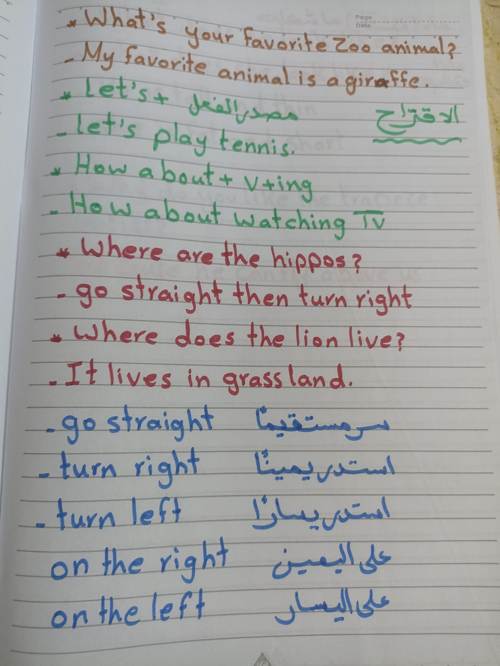 * What's your favorite Zoo animal?
- My favorite animal is a giraffe.
* Let's + مصدر الفعل الاقتراح
- let's play tennis.
* How about + v+ing
- How about watching TV
* Where are the hippos?
- go straight then turn right
* Where does the lion live?
- It lives in grassland.
- go straight سر مستقيمًا
- turn right استدر يمينًا
- turn left استدر يسارًا
on the right على اليمين
on the left على اليسار